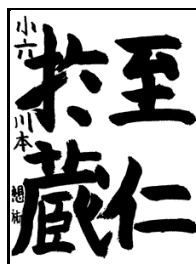 至仁
扵蔵
小六 川本 想祐